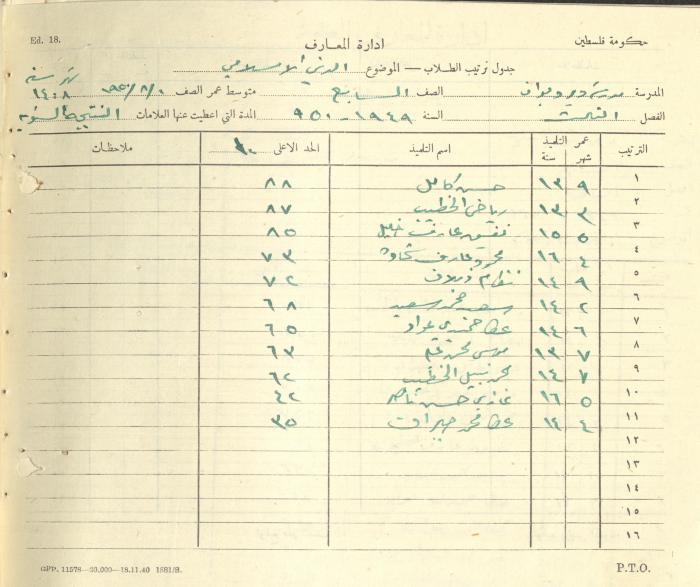 Ed. 18.
حكومة فلسطين
ادارة المعارف
جدول ترتيب الطلاب — الموضوع الدين الاسلامي
المدرسة دير دبوان الصف السابع متوسط عمر الصف ٩٥٠/٨/١ شهر سنة ٨ ١٤
الفصل الثالث السنة ١٩٤٩ - ٩٥٠ المدة التي اعطيت عنها العلامات النتيجة السنوية
الترتيب عمر التلميذ شهر سنة اسم التلميذ الحد الاعلى ملاحظات
١ ٩ ١٣ حسن كامل ٨٨
٢ ٣ ١٣ رياض الخطيب ٨٧
٣ ٥ ١٥ عارف خليل ٨٥
٤ ٤ ١٦ محمود عارف شحاده ٧٣
٥ ٩ ١٤ نظام ٧٢
٦ ٢ ١٤ سعيد محمد سعيد ٦٨
٧ ٦ ١٤ عطا حمدي عواد ٦٥
٨ ٧ ١٣ موسى محمد ٦٣
٩ ٧ ١٤ محمد نبيل الخطيب ٦٢
١٠ ٥ ١٦ غازي حسن ناصر ٤٢
١١ ٤ ١٤ عطا محمد ٣٥
١٢
١٣
١٤
١٥
١٦
GPP. 11578—30,000—18.11.40 1581/B.
P.T.O.